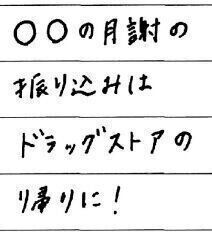 ○○の月謝の
振り込みは
ドラッグストアの
帰りに!